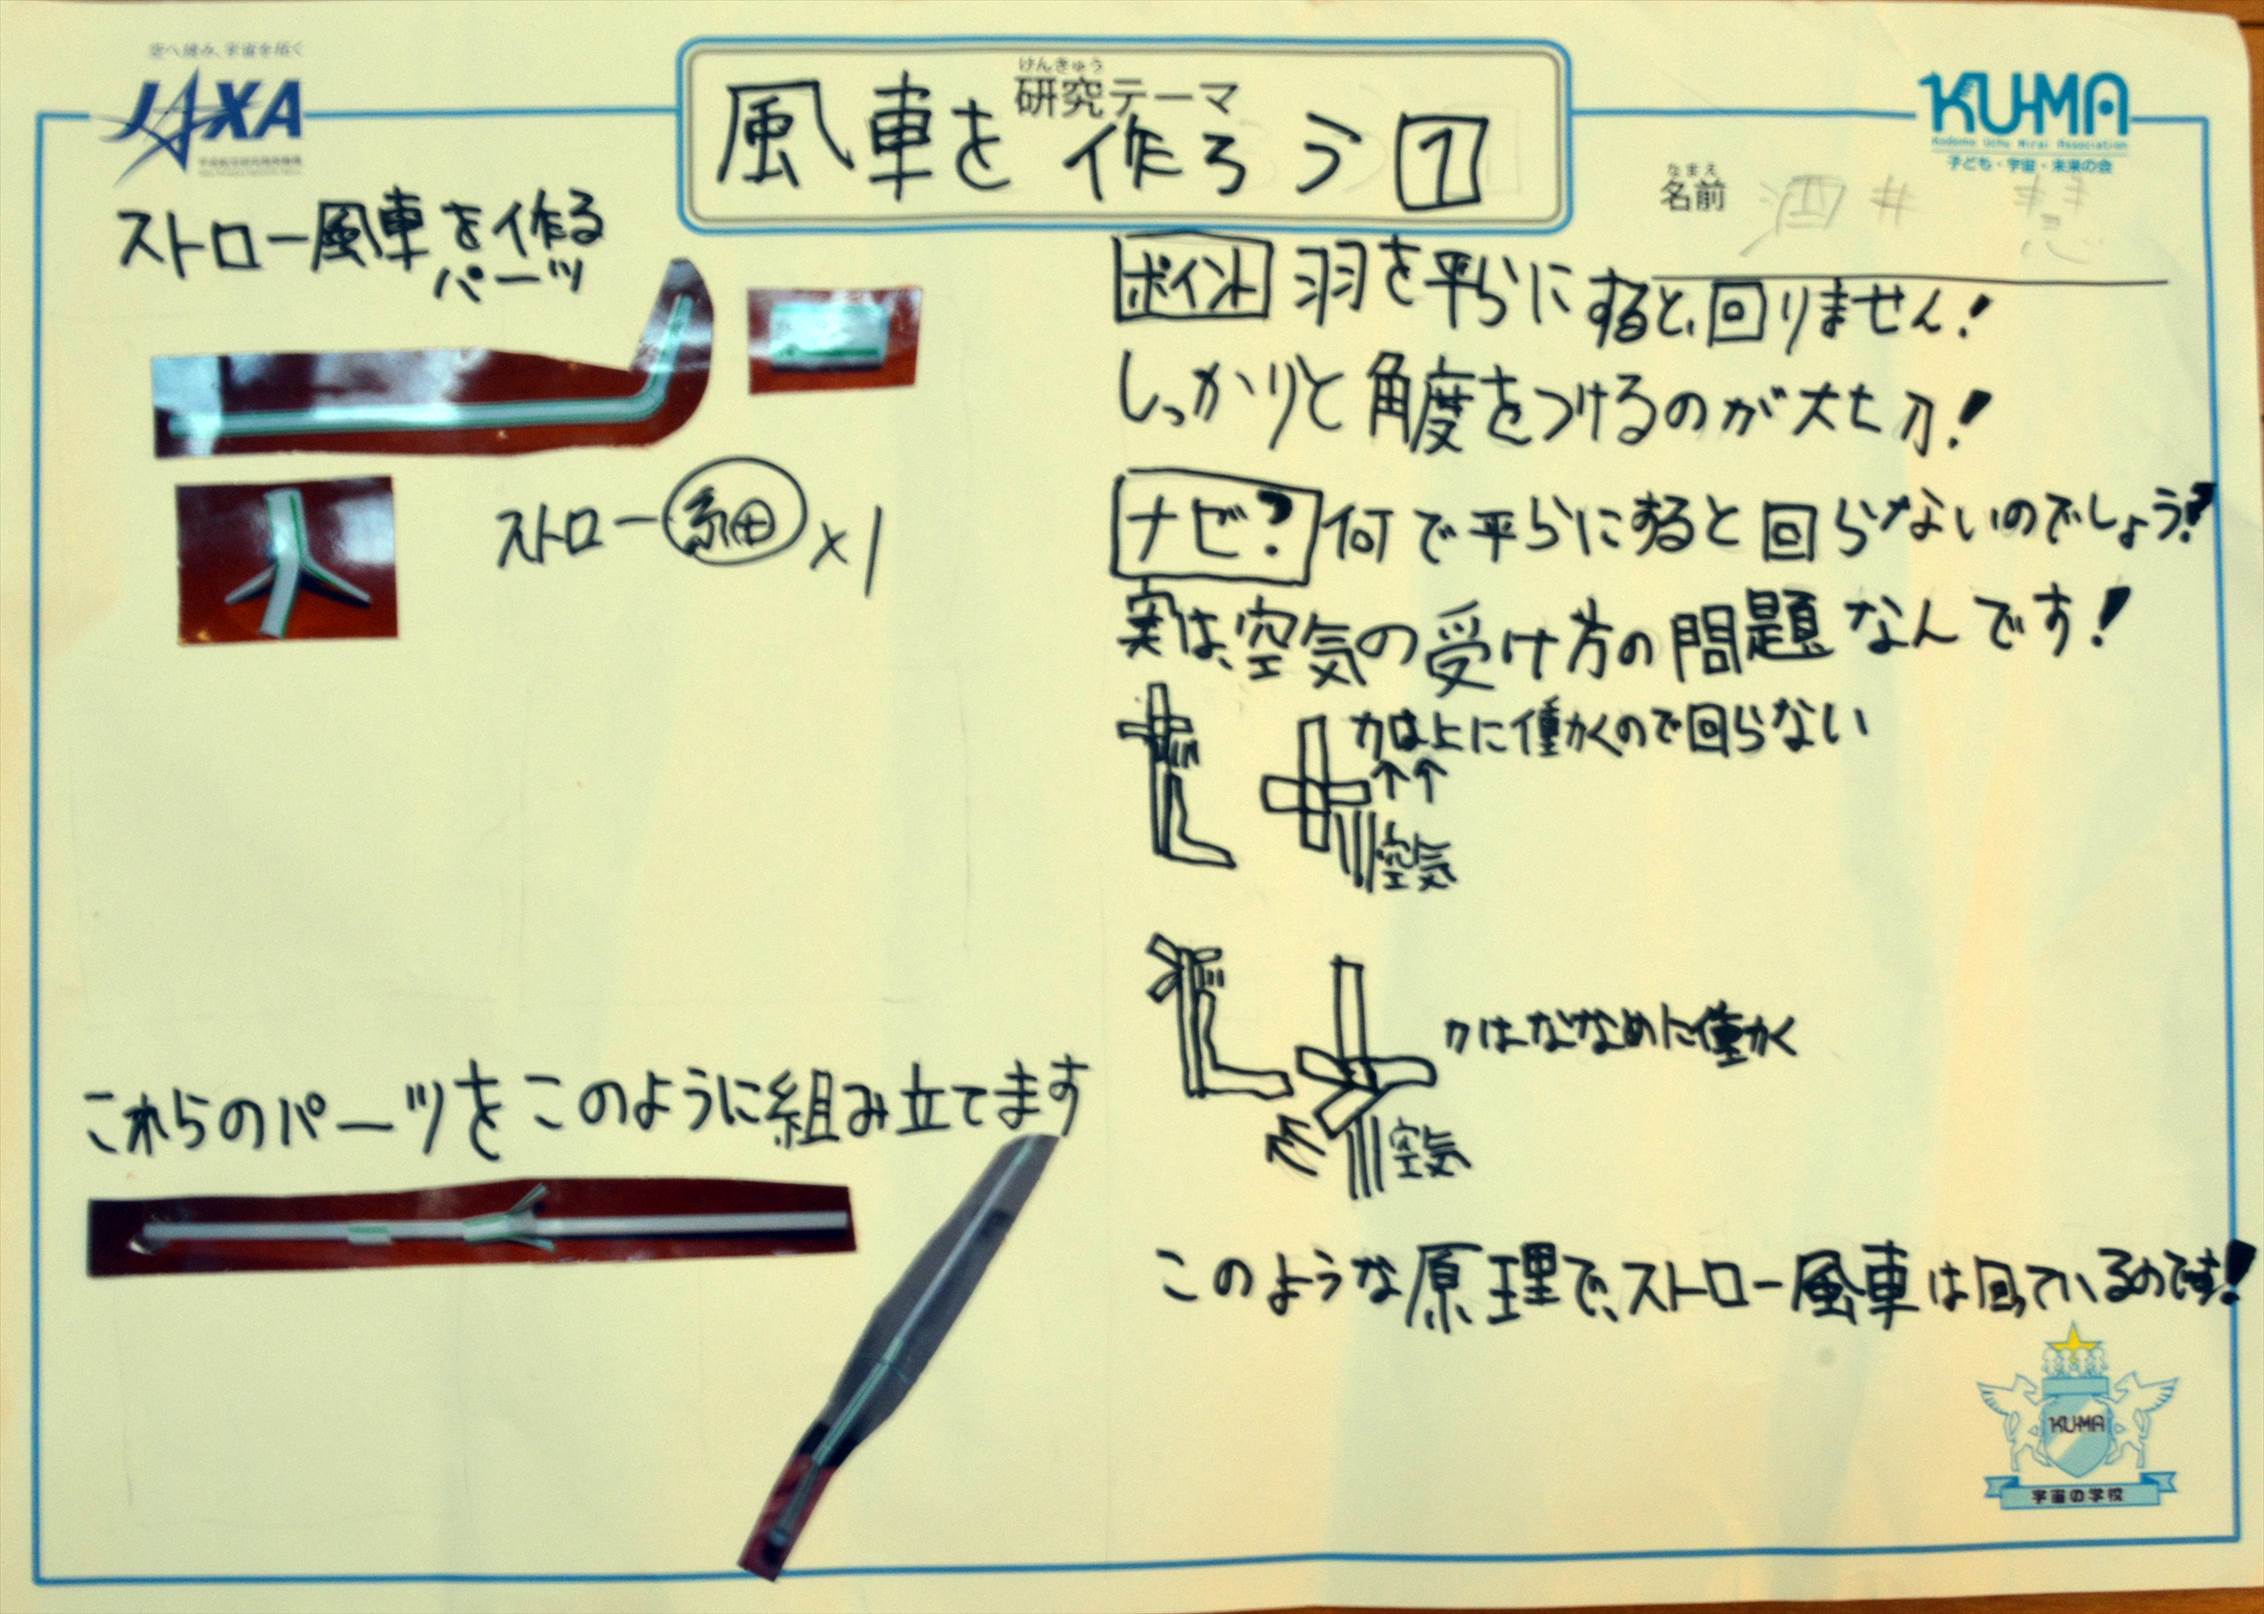 空へ挑み、宇宙を拓く
JAXA
けんきゅう
研究テーマ
風車を作ろう 1
KUMA
Kodomo Uchu Mirai Association
子ども・宇宙・未来の会
なまえ
名前 酒井
ストロー風車を作る
パーツ
ストロー細×1
これらのパーツをこのように組み立てます
ポイント 羽を平らにすると、回りません!
しっかりと角度をつけるのが大切!
ナゼ? 何で平らにすると回らないのでしょう?
実は、空気の受け方の問題なんです!
力は上に働くので回らない
空気
力はななめに働く
空気
このような原理で、ストロー風車は回っているのです!
KUMA
宇宙の学校